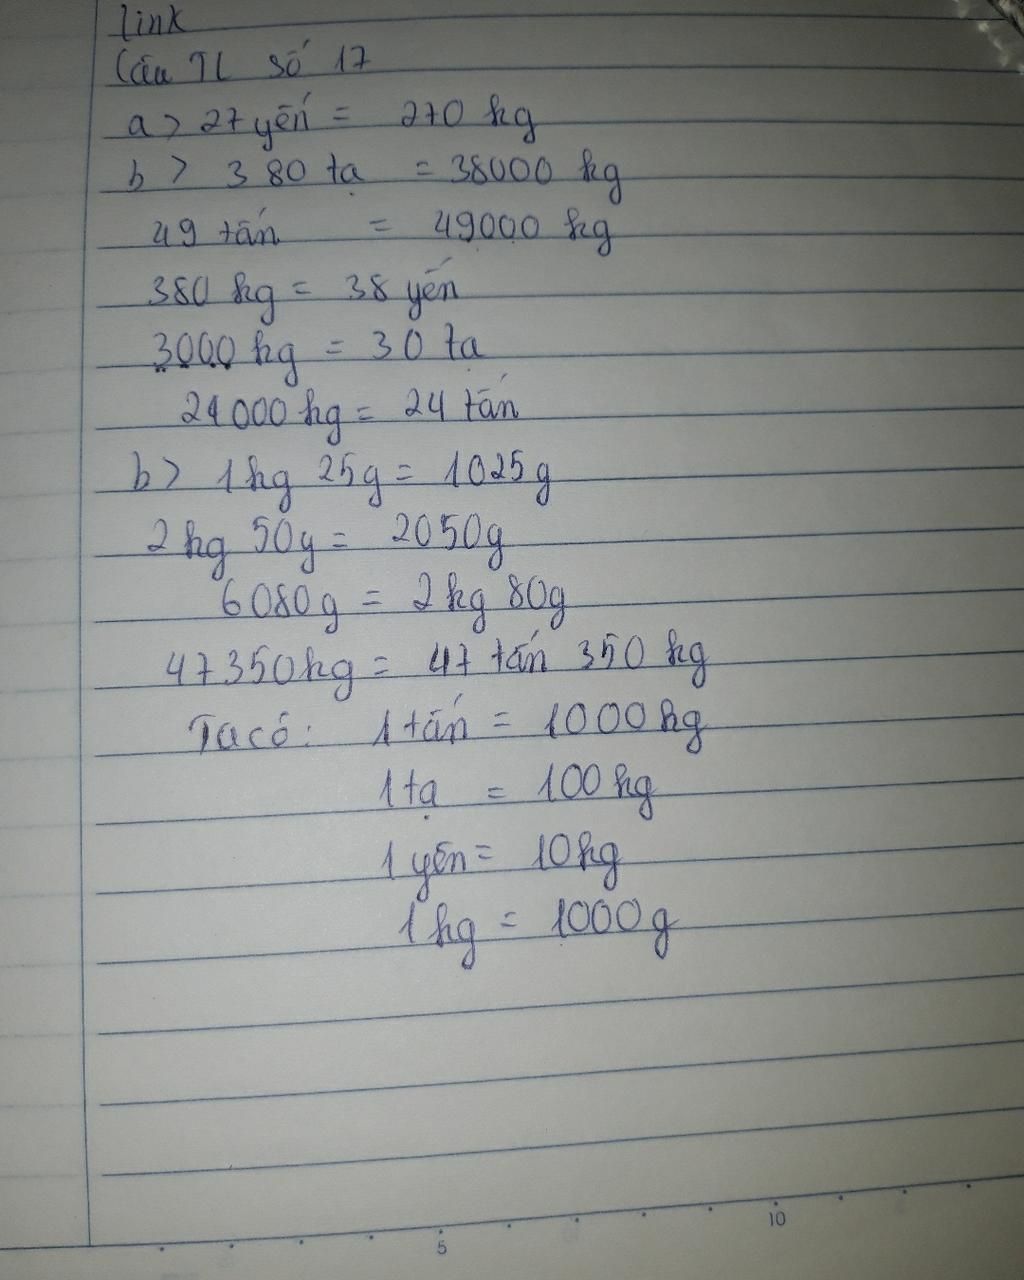 link
Câu TL số 17
a> 27 yến = 270 kg
b> 380 tạ = 38000 kg
49 tấn = 49000 kg
380 kg = 38 yến
3000 kg = 30 tạ
24000 kg = 24 tấn
b> 1kg 25g = 1025g
2kg 50g = 2050g
6080g = 2kg 80g
47350kg = 47 tấn 350 kg
Ta có: 1 tấn = 1000kg
1 tạ = 100kg
1 yến = 10kg
1kg = 1000g
5 10